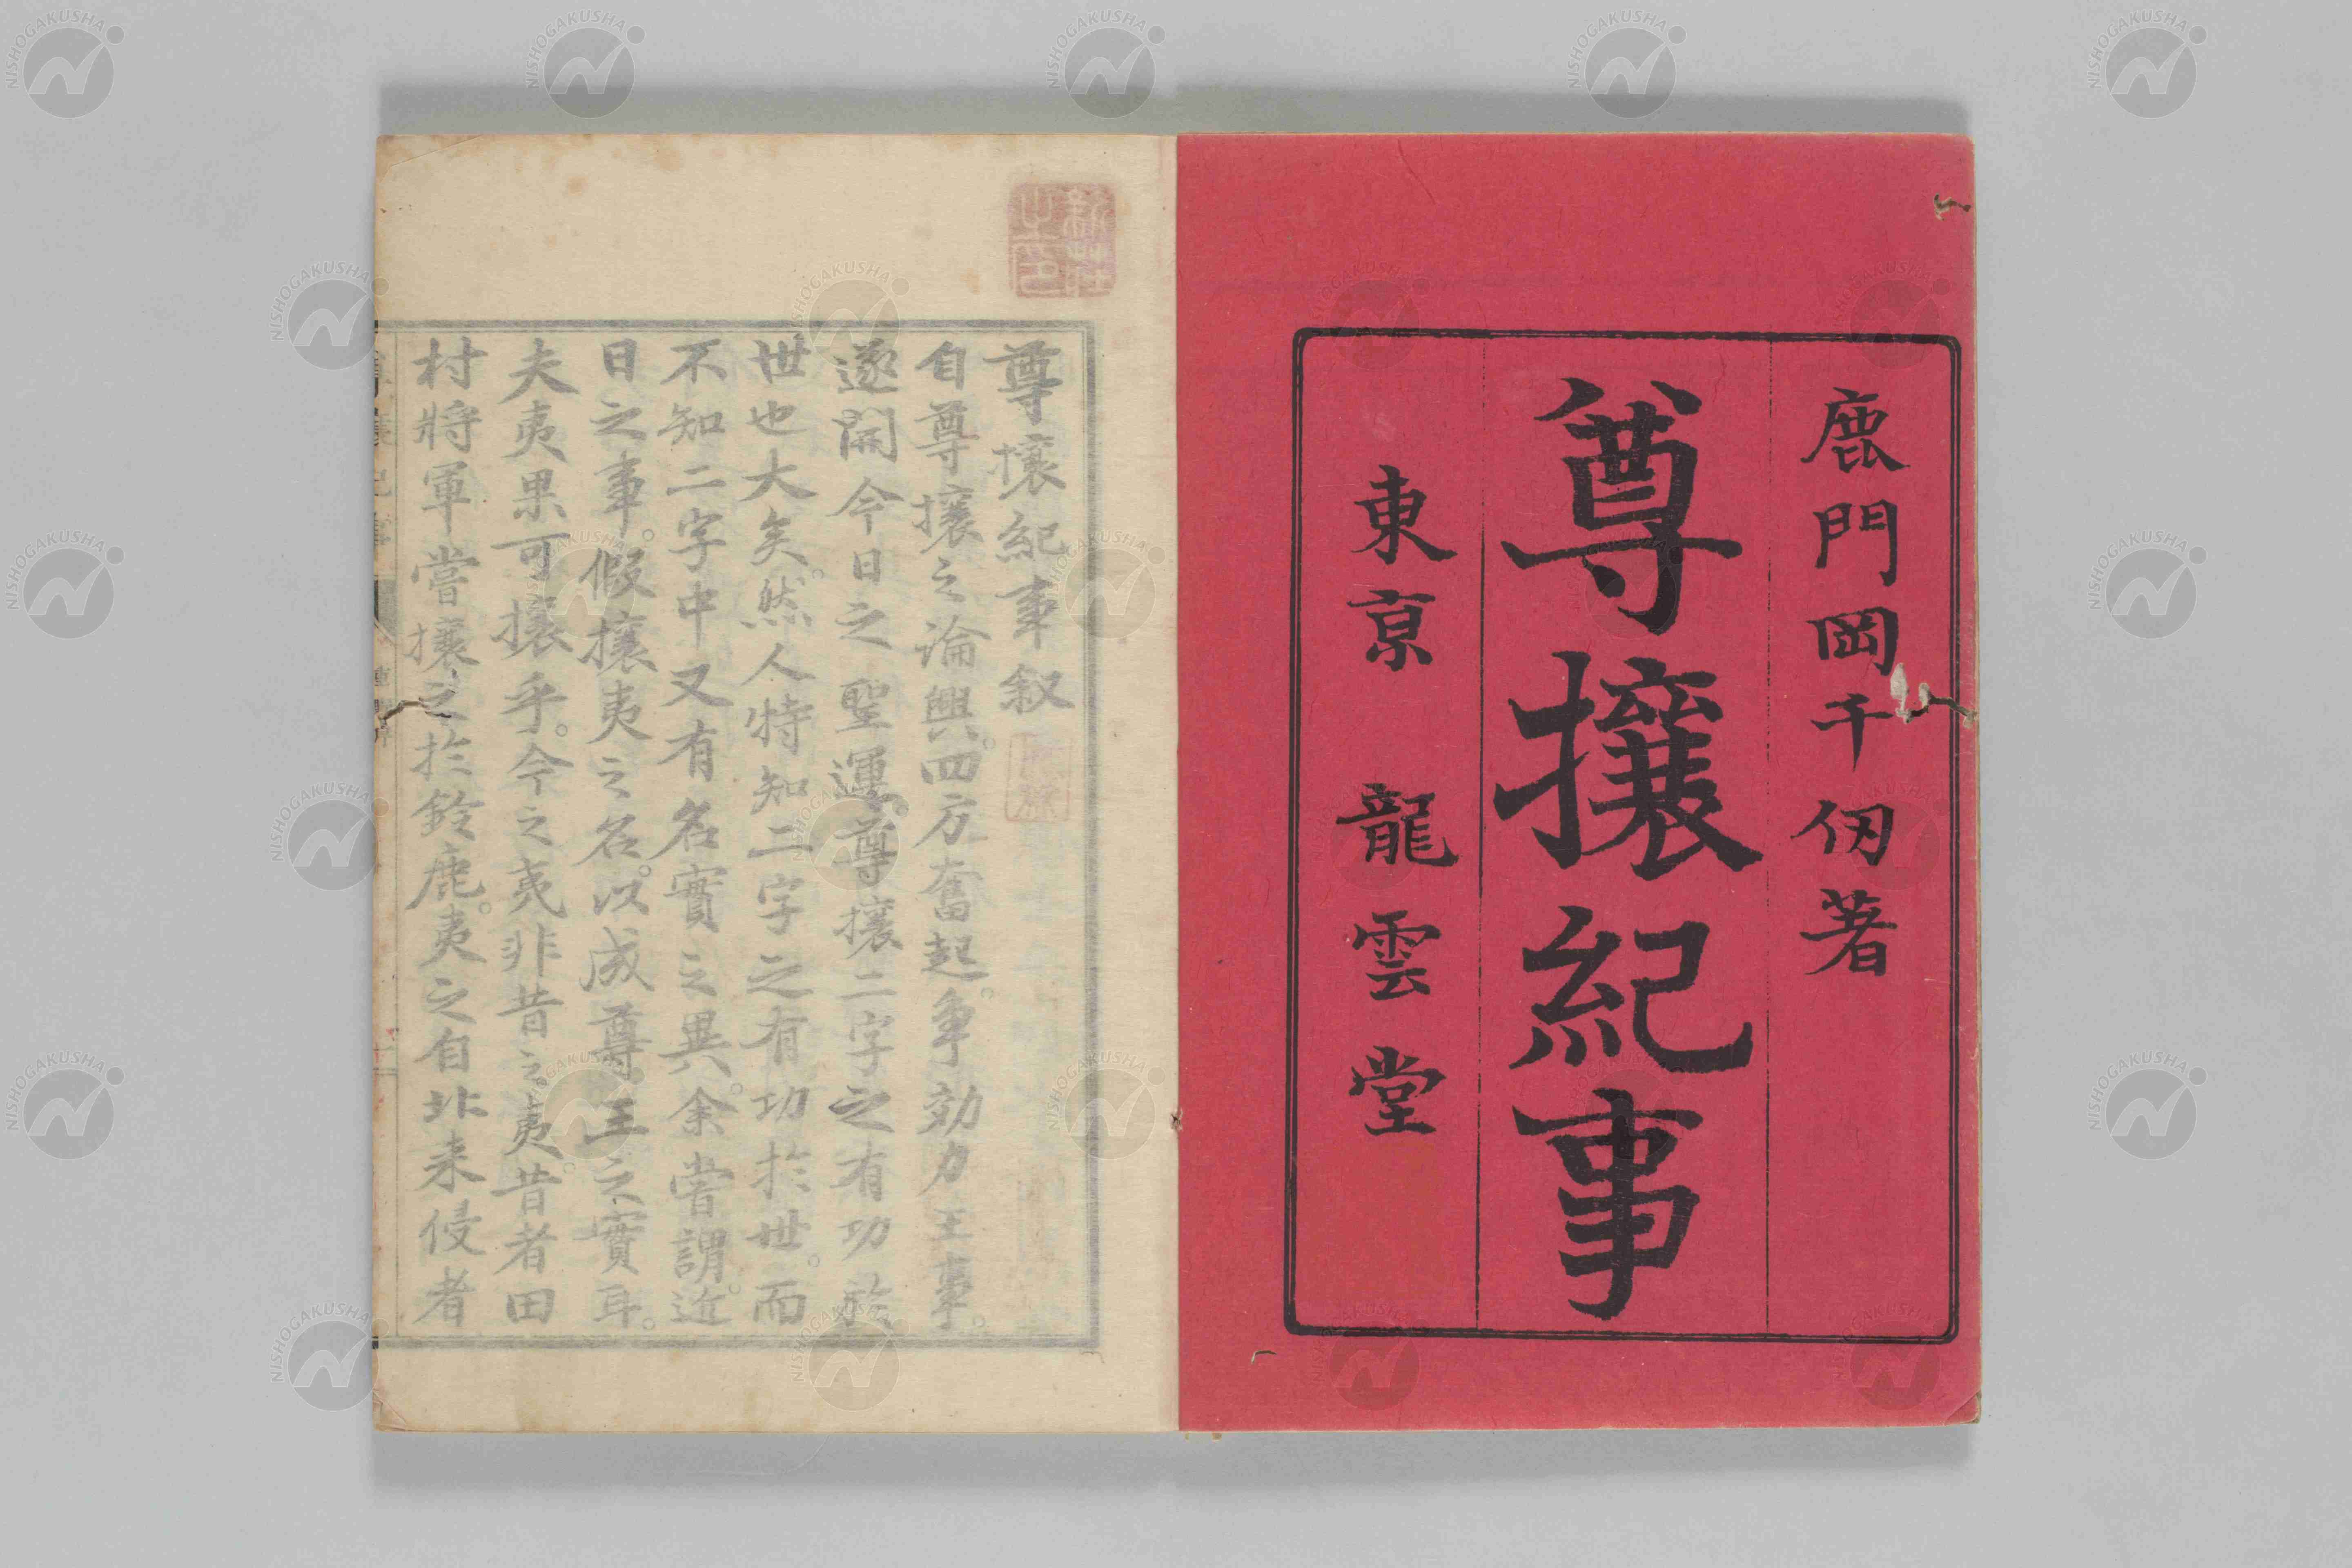 鹿門岡千仞著
尊攘紀事
東亰 龍雲堂
尊攘紀事叙
自尊攘之論興。四方奮起。争効力王事。
遂開今日之 聖運。尊攘二字之有功於
世也大矣。然人特知二字之有功於世。而
不知二字中又有名實之異。余嘗謂。近
日之事。假攘夷之名。以成尊王之實耳。
夫夷果可攘乎。今之夷非昔之夷。昔者田
村將軍嘗攘之於鈴鹿。夷之自北来侵者
NISHOGAKUSHA